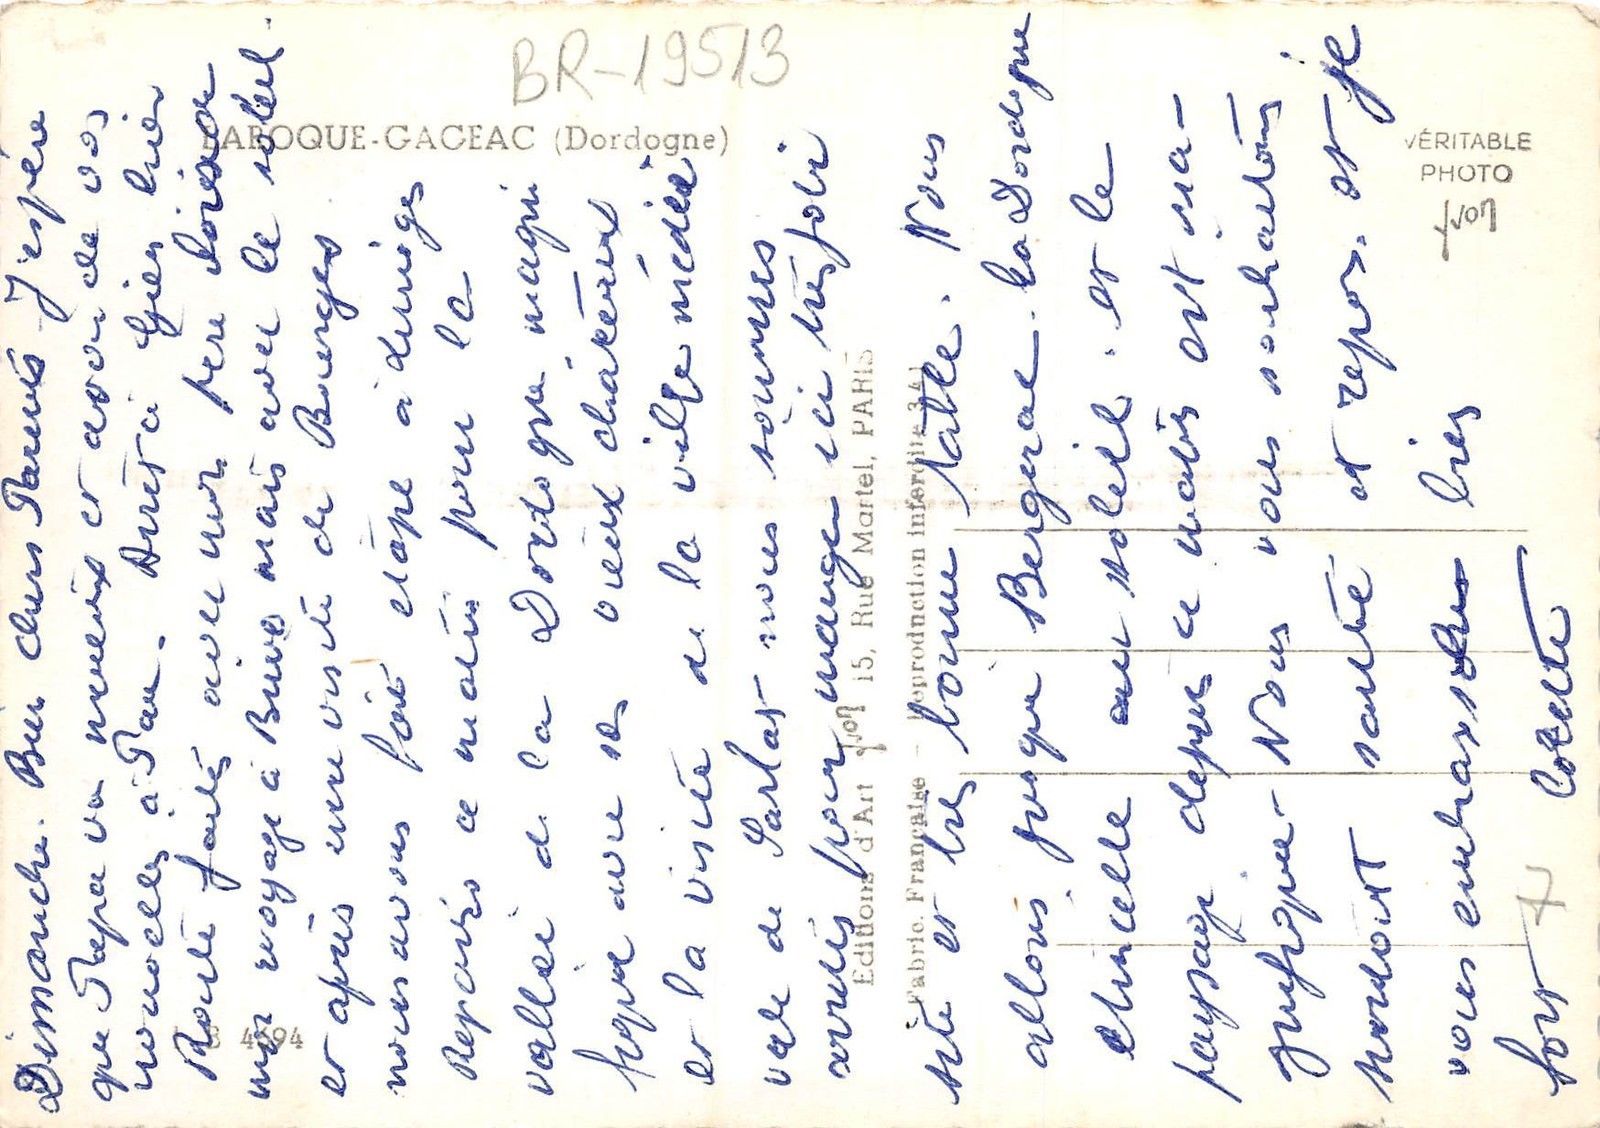 BR-19513
LAROQUE-GAGEAC (Dordogne)
VÉRITABLE
PHOTO
yvon
4694
Editions d'Art yvon 15, Rue Martel, PARIS
Fabric. Française - Reproduction interdite
Dimanche. Bien chers Parents J'espère
que Papa va mieux et avoir de vos
nouvelles à Pau. Arrêt à Gien hier
Route faite avec mon père
mon voyage à Brive mais avec le soleil.
et après une visite de Bourges
nous avons fait étape à Limoges
Repartis ce matin pour la
vallée de la Dordogne magni
fique avec ses vieux châteaux
et la visite de la ville médié
vale de Sarlat nous sommes
arrêtés pour manger ici très joli
site et très bonne table. Nous
allons jusqu'à Bergerac. La Dordogne
étincelle au soleil. et le
paysage depuis ce matin est ma-
gnifique. Nous vous souhaitons
surtout santé et repos. et je
vous embrasse bien
fort Colette